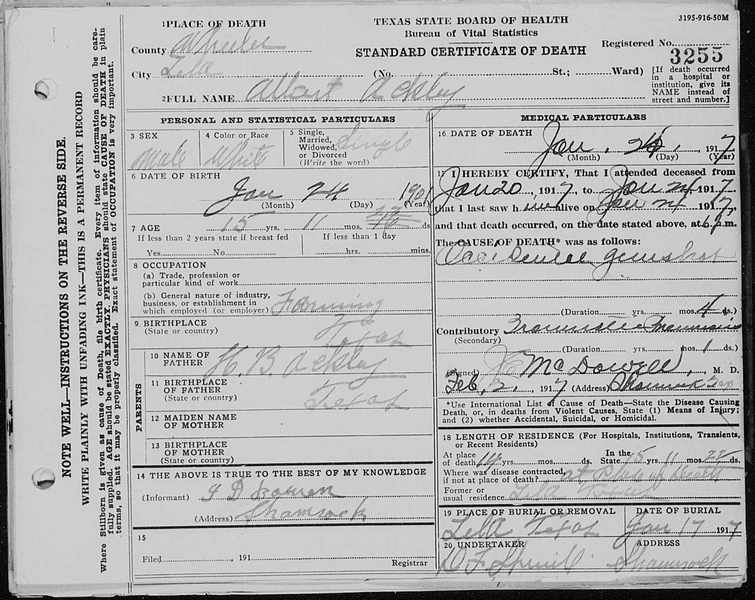 3195-916-50M
1 PLACE OF DEATH
TEXAS STATE BOARD OF HEALTH
Bureau of Vital Statistics
STANDARD CERTIFICATE OF DEATH
Registered No.
3255
County Wheeler
City Lela (No. St.; Ward)
[If death occurred in a hospital or institution, give its NAME instead of street and number.]
2 FULL NAME Albert Ackley
PERSONAL AND STATISTICAL PARTICULARS
3 SEX Male
4 Color or Race White
5 Single, Married, Widowed, or Divorced (Write the word) Single
6 DATE OF BIRTH
Jan 24 1901
(Month) (Day) (Year)
7 AGE 15 yrs. 11 mos. ds
If less than 2 years state if breast fed
If less than 1 day
Yes No hrs. mins.
8 OCCUPATION
(a) Trade, profession or particular kind of work
(b) General nature of industry, business, or establishment in which employed (or employer) Farming
9 BIRTHPLACE
(State or country) Texas
PARENTS
10 NAME OF FATHER H. B. Ackley
11 BIRTHPLACE OF FATHER
(State or country) Texas
12 MAIDEN NAME OF MOTHER
13 BIRTHPLACE OF MOTHER
(State or country)
14 THE ABOVE IS TRUE TO THE BEST OF MY KNOWLEDGE
(Informant)
(Address) Shamrock
15
Filed 191
Registrar
MEDICAL PARTICULARS
16 DATE OF DEATH
Jan. 191 7
(Month) (Day) (Year)
17 I HEREBY CERTIFY, That I attended deceased from
Jan 20 191 7 to Jan 24 191 7
that I last saw h im alive on Jan 24 191 7
and that death occurred, on the date stated above, at 6 p m.
The CAUSE OF DEATH* was as follows:
Accidental gunshot
(Duration yrs. mos. 4 ds.)
Contributory Traumatic
(Secondary) (Duration yrs. mos. 1 ds.)
Signed McDowell, M. D.
Feb, 2, 191 7 (Address) Shamrock Tex
*Use International List of Cause of Death—State the Disease Causing Death, or, in deaths from Violent Causes, State (1) Means of Injury; and (2) whether Accidental, Suicidal, or Homicidal.
18 LENGTH OF RESIDENCE (For Hospitals, Institutions, Transients, or Recent Residents)
At place of death yrs. mos. ds. In the State 15 yrs. 11 mos. ds.
Where was disease contracted, if not at place of death? at place of death
Former or usual residence Lela Texas
19 PLACE OF BURIAL OR REMOVAL
Lela Texas
DATE OF BURIAL
Jan 17 191 7
20 UNDERTAKER
ADDRESS
Shamrock
NOTE WELL—INSTRUCTIONS ON THE REVERSE SIDE.
WRITE PLAINLY WITH UNFADING INK—THIS IS A PERMANENT RECORD
Where Stillborn is given as cause of Death, file birth certificate. Every item of information should be carefully supplied. AGE should be stated EXACTLY. PHYSICIANS should state CAUSE OF DEATH in plain terms, so that it may be properly classified. Exact statement of OCCUPATION is very important.